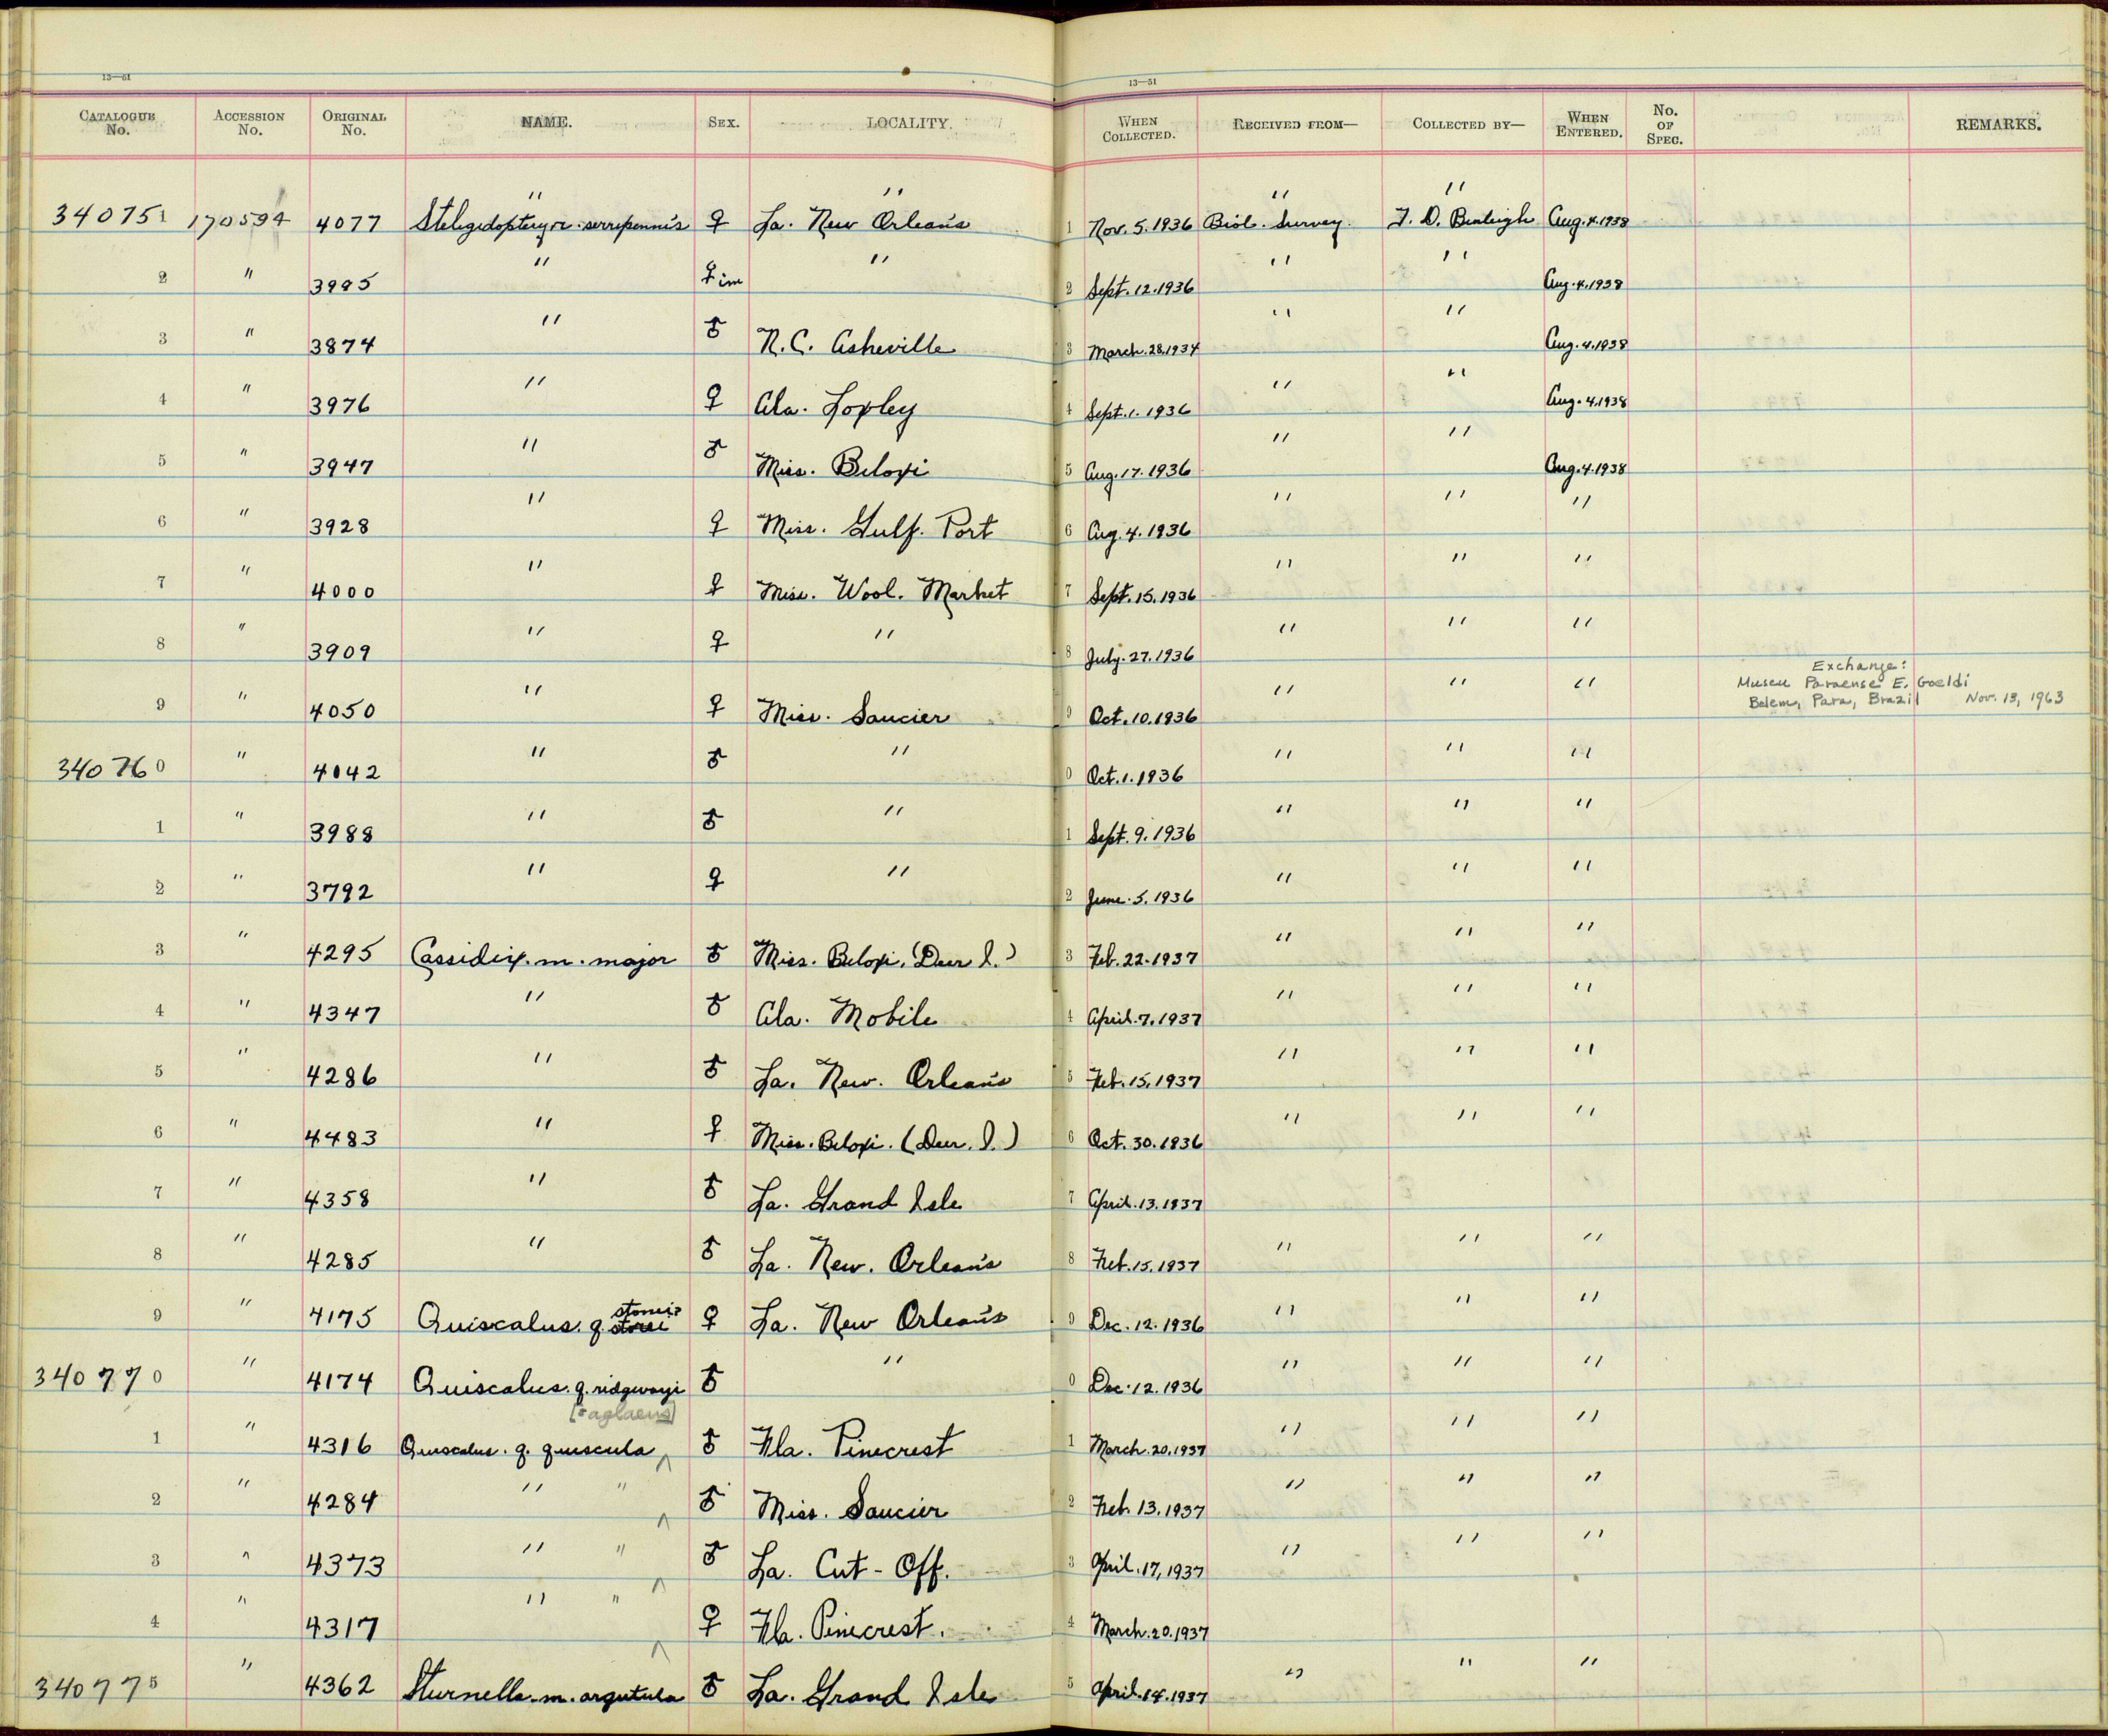 13—51 13—51
CATALOGUE No. ACCESSION No. ORIGINAL No. NAME. SEX. LOCALITY. WHEN COLLECTED. RECEIVED FROM— COLLECTED BY— WHEN ENTERED. No. OF SPEC. REMARKS.
" " " "
340751 170594 4077 Stelgidopteryx. serripennis ♀ La. New Orleans 1 Nov. 5. 1936 Biol. Survey. T. D. Burleigh Aug. 4. 1938
2 " 3995 " ♀ im " 2 Sept. 12. 1936 " " Aug. 4. 1938
3 " 3874 " ♂ N.C. Asheville 3 March. 28. 1934 " " Aug. 4. 1938
4 " 3976 " ♀ Ala. Loxley 4 Sept. 1. 1936 " " Aug. 4. 1938
5 " 3947 " ♂ Miss. Biloxi 5 Aug. 17. 1936 " " Aug. 4. 1938
6 " 3928 " ♀ Miss. Gulf. Port 6 Aug. 4. 1936 " " "
7 " 4000 " ♀ Miss. Wool. Market 7 Sept. 15. 1936 " " "
8 " 3909 " ♀ " 8 July. 27. 1936 " " "
Exchange:
Museu Paraense E. Goeldi
9 " 4050 " ♀ Miss. Saucier 9 Oct. 10. 1936 " " " Belem, Para, Brazil Nov. 13, 1963
340760 " 4042 " ♂ " 0 Oct. 1. 1936 " " "
1 " 3988 " ♂ " 1 Sept. 9. 1936 " " "
2 " 3792 " ♀ " 2 June. 5. 1936 " " "
3 " 4295 Cassidix. m. major ♂ Miss. Biloxi. (Deer I.) 3 Feb. 22. 1937 " " "
4 " 4347 " ♂ Ala. Mobile 4 April. 7. 1937 " " "
5 " 4286 " ♂ La. New. Orleans 5 Feb. 15. 1937 " " "
6 " 4483 " ♀ Miss. Biloxi. (Deer. I.) 6 Oct. 30. 1936 " " "
7 " 4358 " ♂ La. Grand Isle 7 April. 13. 1937
8 " 4285 " ♂ La. New. Orleans 8 Feb. 15. 1937 " " "
stonei?
9 " 4175 Quiscalus. q. ♀ La. New Orleans 9 Dec. 12. 1936 " " "
340770 " 4174 Quiscalus. q. ridgwayi ♂ " 0 Dec. 12. 1936 " " "
[= aglaeus]
1 " 4316 Quiscalus. q. quiscula ^ ♂ Fla. Pinecrest 1 March. 20. 1937 " " "
2 " 4284 " " ^ ♂ Miss. Saucier 2 Feb. 13. 1937 " " "
3 " 4373 " " ^ ♂ La. Cut-Off. 3 April. 17, 1937 " " "
4 " 4317 " " ^ ♀ Fla. Pinecrest. 4 March. 20. 1937
340775 " 4362 Sturnella. m. argutula ♂ La. Grand Isle 5 April. 14. 1937 " " "